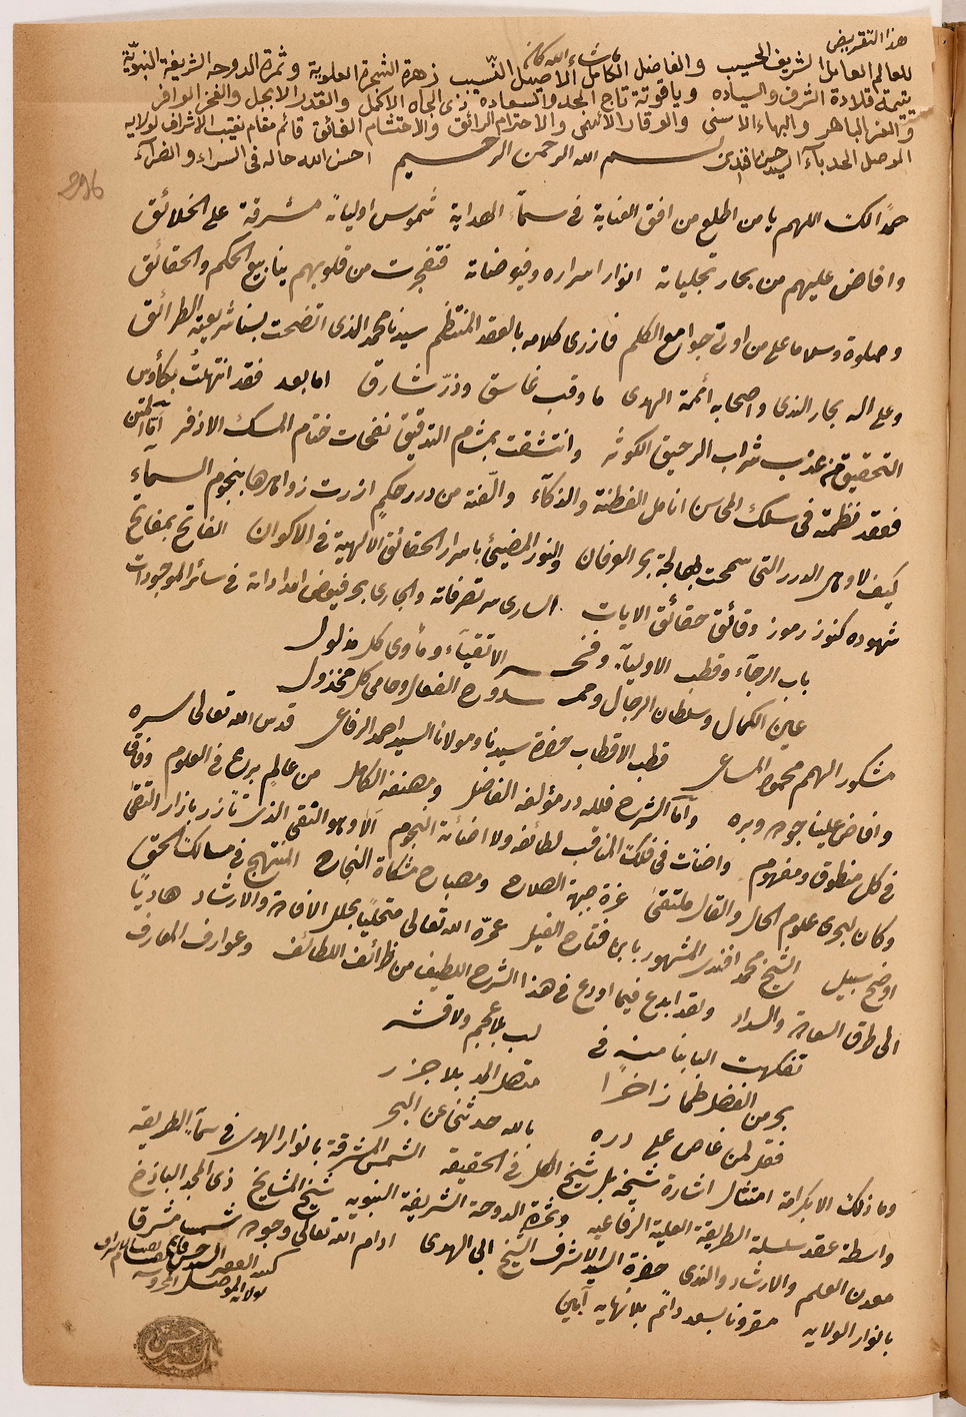 هذا التقريض
ما شاء الله كان
للعالم العامل الشريف الحسيب والفاضل الكامل الاصيل النسيب زهرة الشجرة العلوية وثمرة الدوحه الشريفة النبويّة
يتيمة قلادة الشرف والسياده وياقوتة تاج المجد والسعاده ذى الجاه الاكمل والقدر الابجل والفخر الوافر
والعز الباهر والبهاء الاسنى والوقار الاهنى والاحترام الرائق والاحتشام الفائق قائم مقام نقيب الاشراف لولاية
الموصل الحدبآء السيد حسن افندى احسن الله حاله فى السراء والضرآء
بسم الله الرحمن الرحيم
296
حمدًا لك اللهم يا من اطلع من افق العناية فى سمآء الهداية شموس اوليائه مشرقة على الخلائق
وافاض عليهم من بحار تجلياته انوار اسراره وفيوضاته فتفجرت من قلوبهم ينابيع الحكم والحقائق
وصلوة وسلاما على من اوتى جوامع الكلم فازرى كلامه بالعقد المنتظم سيدنا محمد الذى اتضحت بسنا شريعته الطرائق
وعلى اله بحار الندى واصحابه أئمة الهدى ما وقب غاسق وذرّ شارق اما بعد فقد انتهلتُ بكأوس
التحقيق من عذب شراب الرحيق الكوثر وانتشقت بمشام التدقيق نفحات ختام المسك الاذفر أمّا المتن
فعقد نظمته فى سلك المحاسن انامل الفطنة والذكآء والّفته من درر حكمٍ ازرت زواهرها بنجوم السمآء
كيف لا وهى الدرر التى سمحت بها لجة بحر العرفان والنور المضيئ بأسرار الحقائق الالهية فى الاكوان الفاتح بمفاتيح
شهوده كنوز رموز دقائق حقائق الايات السارى سر تصرفاته والجارى بحر فيوض امداداته فى سائر الموجودات
باب الرجآء وقطب الاوليآء وفخر الاتقيآء ومأوى كل مذلول
عين الكمال وسلطان الرجال ومحمود الفعال وحامى كل مخذول
مشكور الهمم محمود المساعى قطب الاقطاب حضرة سيدنا ومولانا السيد احمد الرفاعى قدس الله تعالى سره
وافاض علينا جوده وبره وأمّا الشرح فلله در مؤلفه الفاضل ومصنفه الكامل من عالم برع فى العلوم وفاق
فى كل منطوق ومفهوم واضآت فى فلك المناقب لطائفه ولا اضائة النجوم ألا وهو التقى الذى تأزر بازار التقى
وكان لبحرى علوم الحال والقال ملتقى غرة جبهة الصلاح ومصباح مشكاة النجاح المنتهج فى مسالك الحق
اوضح سبيل الشيخ محمد افندى المشهور بابن فتاح الفيل عمّره الله تعالى متحليًا بحلل الافادة والارشاد هاديًا
الى طرق السعادة والسداد ولقد ابدع فيما اودع فى هذا الشرح اللطيف من ظرائف اللطائف وعوارف المعارف
تفكهت البابنا منه فى لب بلا عجم ولا قشر
بحر من الفضل طما زاخرا متصل المد بلا جزر
فقل لمن غاص على دره بالله حدثنى عن البحر
وما ذلك الا بكرامة امتثال اشارة شيخه بل شيخ الكل فى الحقيقه الشمس المشرقة بانوار الهدى فى سمآء الطريقه
واسطة عقد سلسلة الطريقة العلية الرفاعيه وثمرة الدوحة الشريفة النبويه شيخ المشايخ ذى المجد الباذخ
معدن العلم والارشاد والندى حضرة السيد الاشرف الشيخ ابى الهدى ادام الله تعالى وجوده شمسا مشرقا
بانوار الولايه مقرونا بسعد دائم بلا نهايه آمين
كتبه الفقير السيد حسن قائم مقام نقيب الاشراف
لولاية الموصل المحروسه